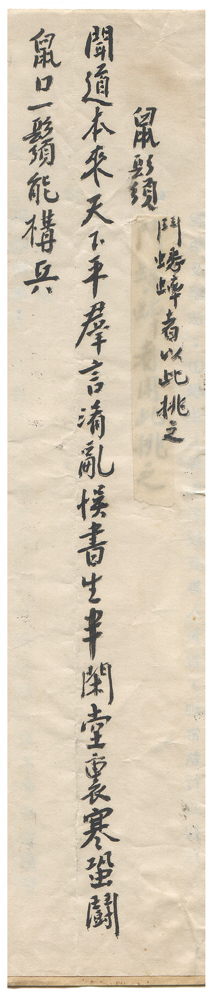 鼠鬚
鬥蟋蟀者以此挑之
聞道本來天下平羣言淆亂悞書生半閑堂裏寒蛩鬭
鼠口一鬚能構兵